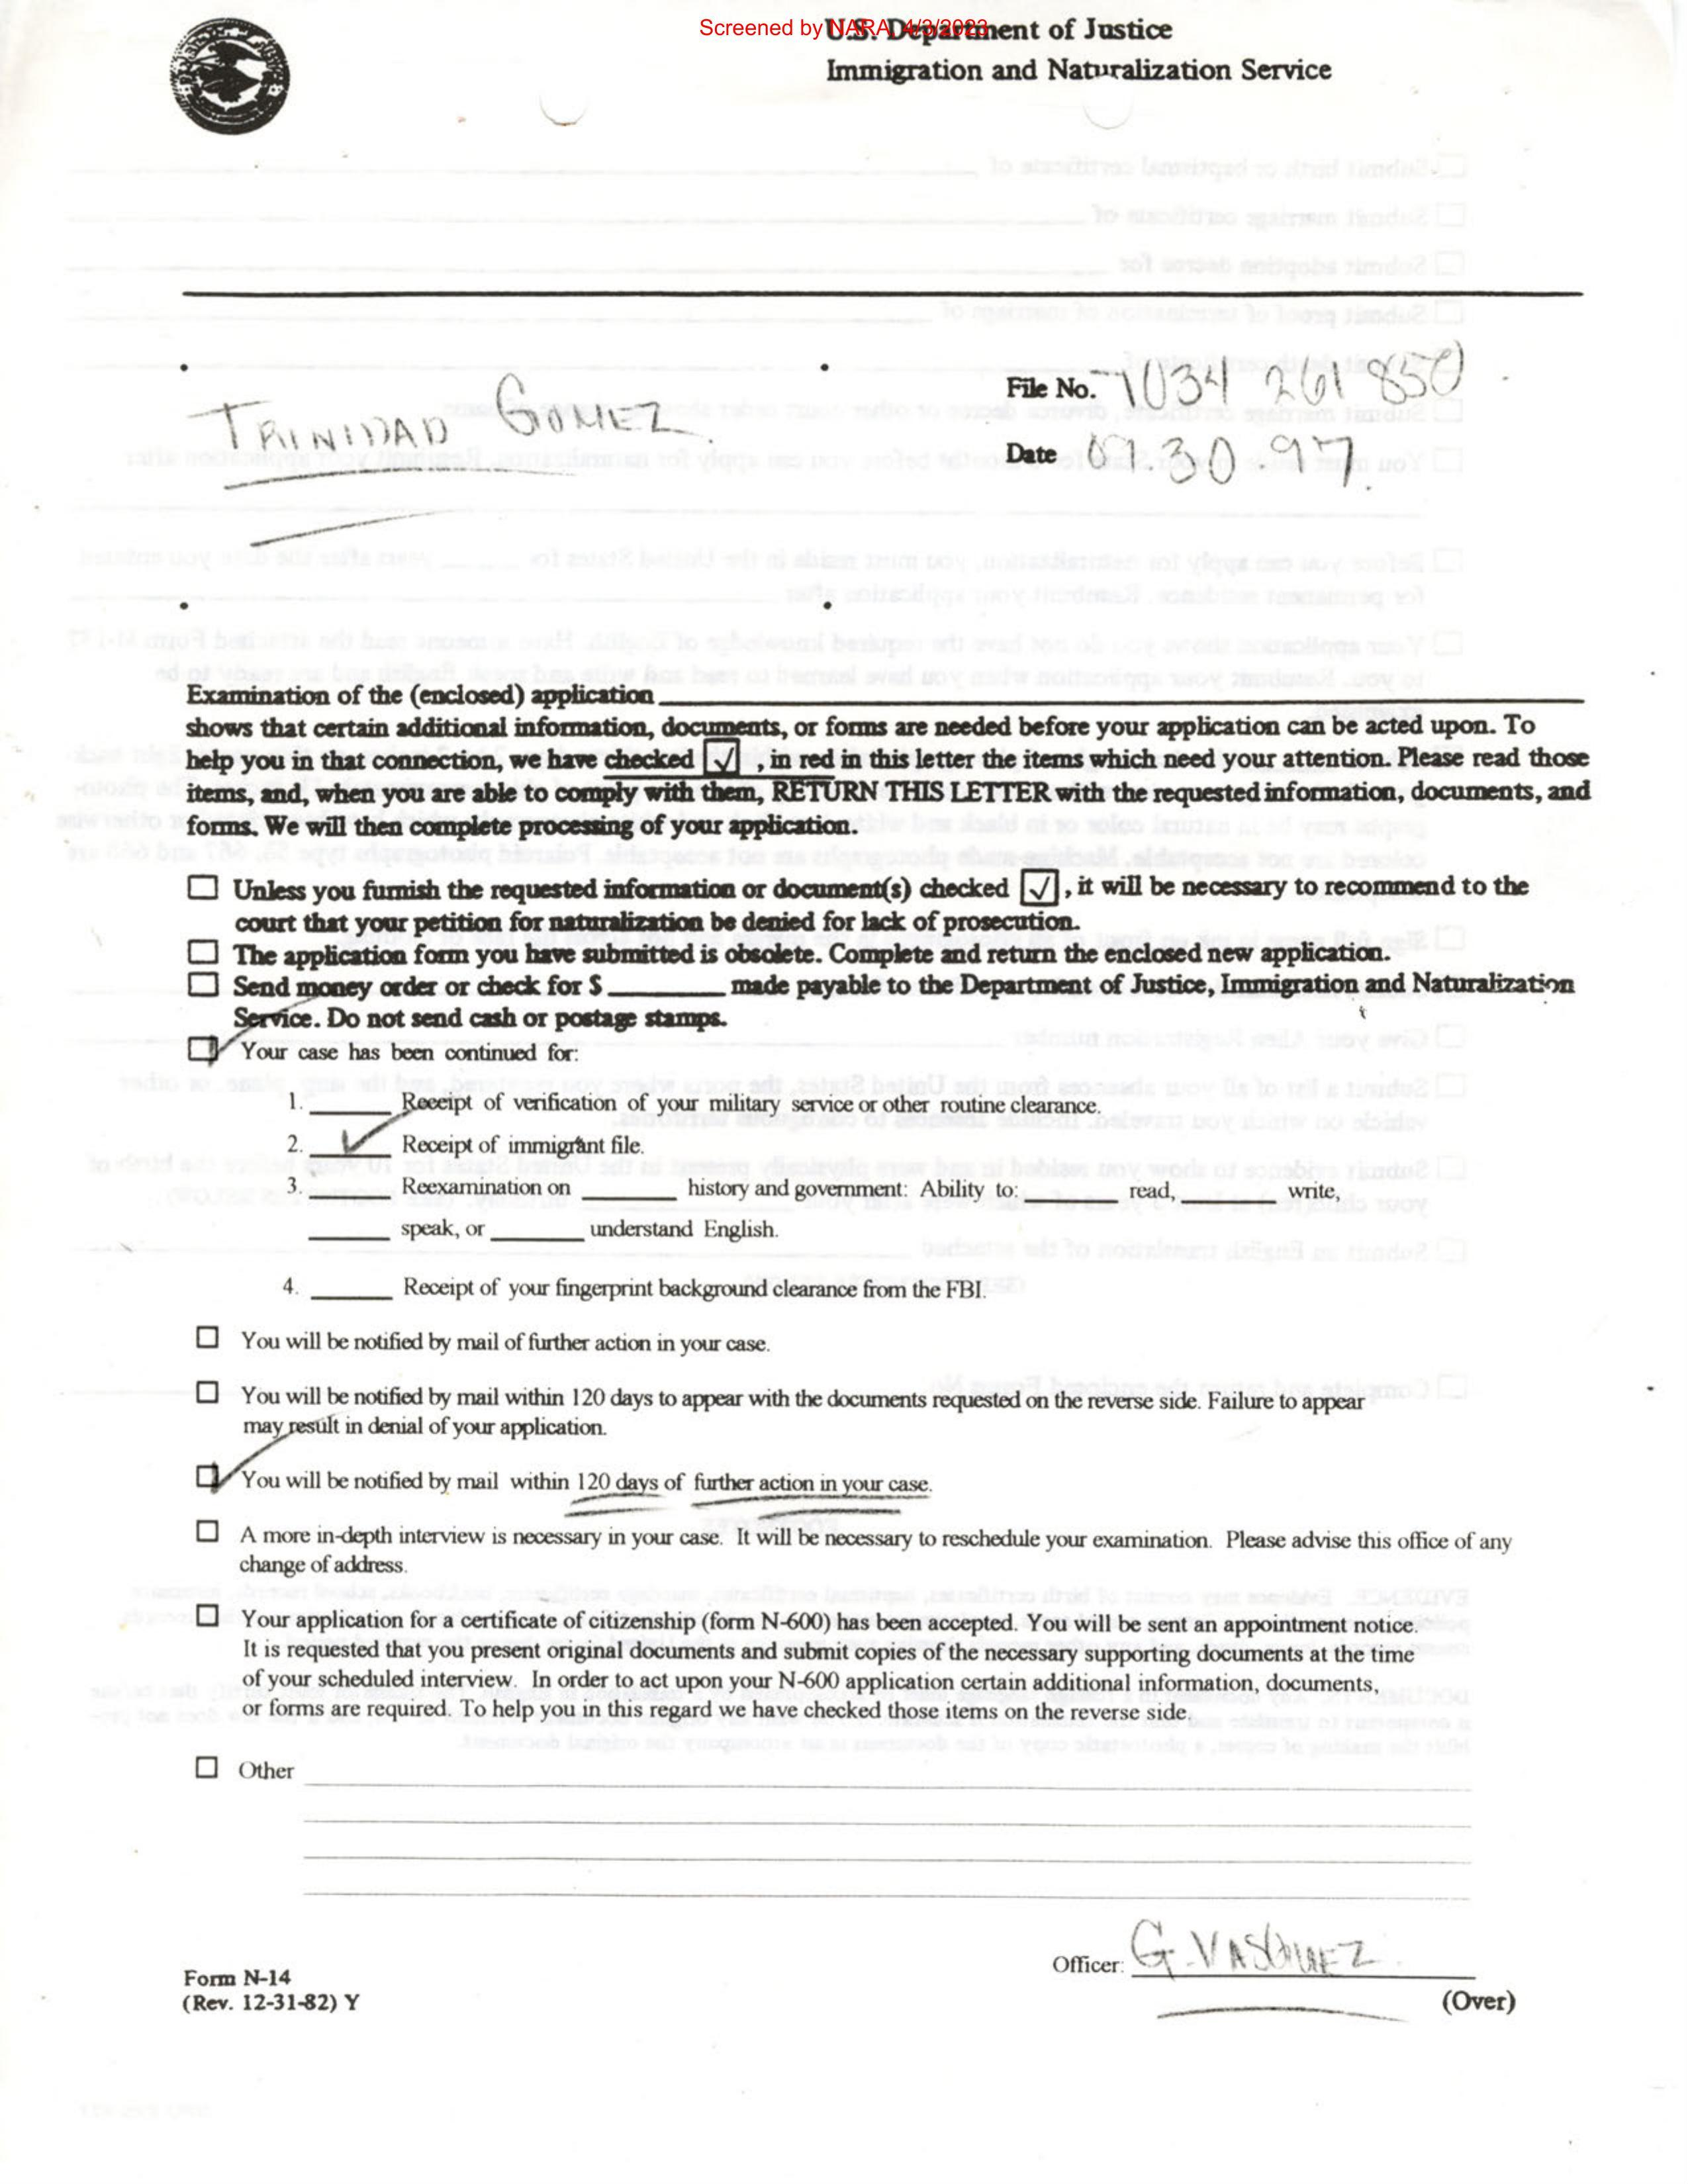 Screened by NARA, 4/3/2023
U.S. Department of Justice
Immigration and Naturalization Service
TRINIDAD GOMEZ
File No.
Date 30.97
Examination of the (enclosed) application
shows that certain additional information, documents, or forms are needed before your application can be acted upon. To
help you in that connection, we have checked ☑, in red in this letter the items which need your attention. Please read those
items, and, when you are able to comply with them, RETURN THIS LETTER with the requested information, documents, and
forms. We will then complete processing of your application.
☐ Unless you furnish the requested information or document(s) checked ☑, it will be necessary to recommend to the
court that your petition for naturalization be denied for lack of prosecution.
☐ The application form you have submitted is obsolete. Complete and return the enclosed new application.
☐ Send money order or check for $ ______ made payable to the Department of Justice, Immigration and Naturalization
Service. Do not send cash or postage stamps.
☑ Your case has been continued for:
1. ______ Receipt of verification of your military service or other routine clearance.
2. ✓ Receipt of immigrant file.
3. ______ Reexamination on ______ history and government: Ability to: ______ read, ______ write,
______ speak, or ______ understand English.
4. ______ Receipt of your fingerprint background clearance from the FBI.
☐ You will be notified by mail of further action in your case.
☐ You will be notified by mail within 120 days to appear with the documents requested on the reverse side. Failure to appear
may result in denial of your application.
☑ You will be notified by mail within 120 days of further action in your case.
☐ A more in-depth interview is necessary in your case. It will be necessary to reschedule your examination. Please advise this office of any
change of address.
☐ Your application for a certificate of citizenship (form N-600) has been accepted. You will be sent an appointment notice.
It is requested that you present original documents and submit copies of the necessary supporting documents at the time
of your scheduled interview. In order to act upon your N-600 application certain additional information, documents,
or forms are required. To help you in this regard we have checked those items on the reverse side.
☐ Other
Officer: G. VASQUEZ
Form N-14
(Rev. 12-31-82) Y
(Over)